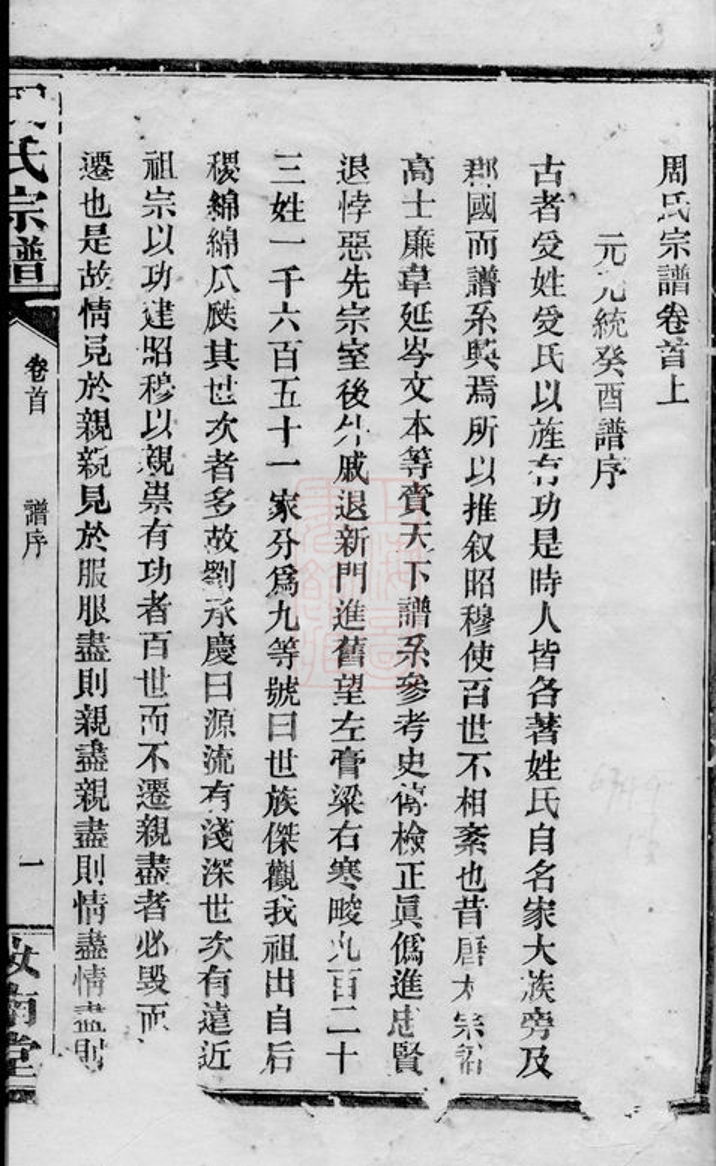 周氏宗譜卷首上
元元統癸酉譜序
古者受姓受氏以旌有功是時人皆各著姓氏自名家大族旁及
郡國而譜系興焉所以推叙昭穆使百世不相紊也昔唐太宗詔
高士廉韋延岑文本等賚天下譜系參考史傳檢正眞僞進忠賢
退悖惡先宗室後外戚退新門進舊望左膏粱右寒畯九百二十
三姓一千六百五十一家分爲九等號曰世族傑觀我祖出自后
稷綿綿瓜瓞其世次者多故劉承慶曰源流有淺深世次有遠近
祖宗以功建昭穆以親崇有功者百世而不遷親盡者必毀而
遷也是故情見於親親見於服服盡則親盡親盡則情盡情盡則
氏宗譜
卷首
譜序
一
汝南堂